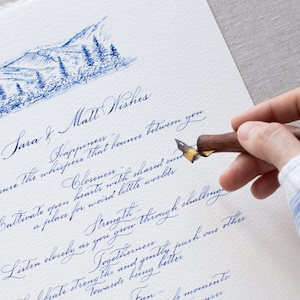 Sara & Matt Wishes
Happiness
the whispers that bounce between you
Closeness
Cultivate open hearts with shared
a place for weird little worlds
Strength
Listen closely as you grow through challenges
Togetherness
strengths and gently push one other
towards being better
Fun
moments